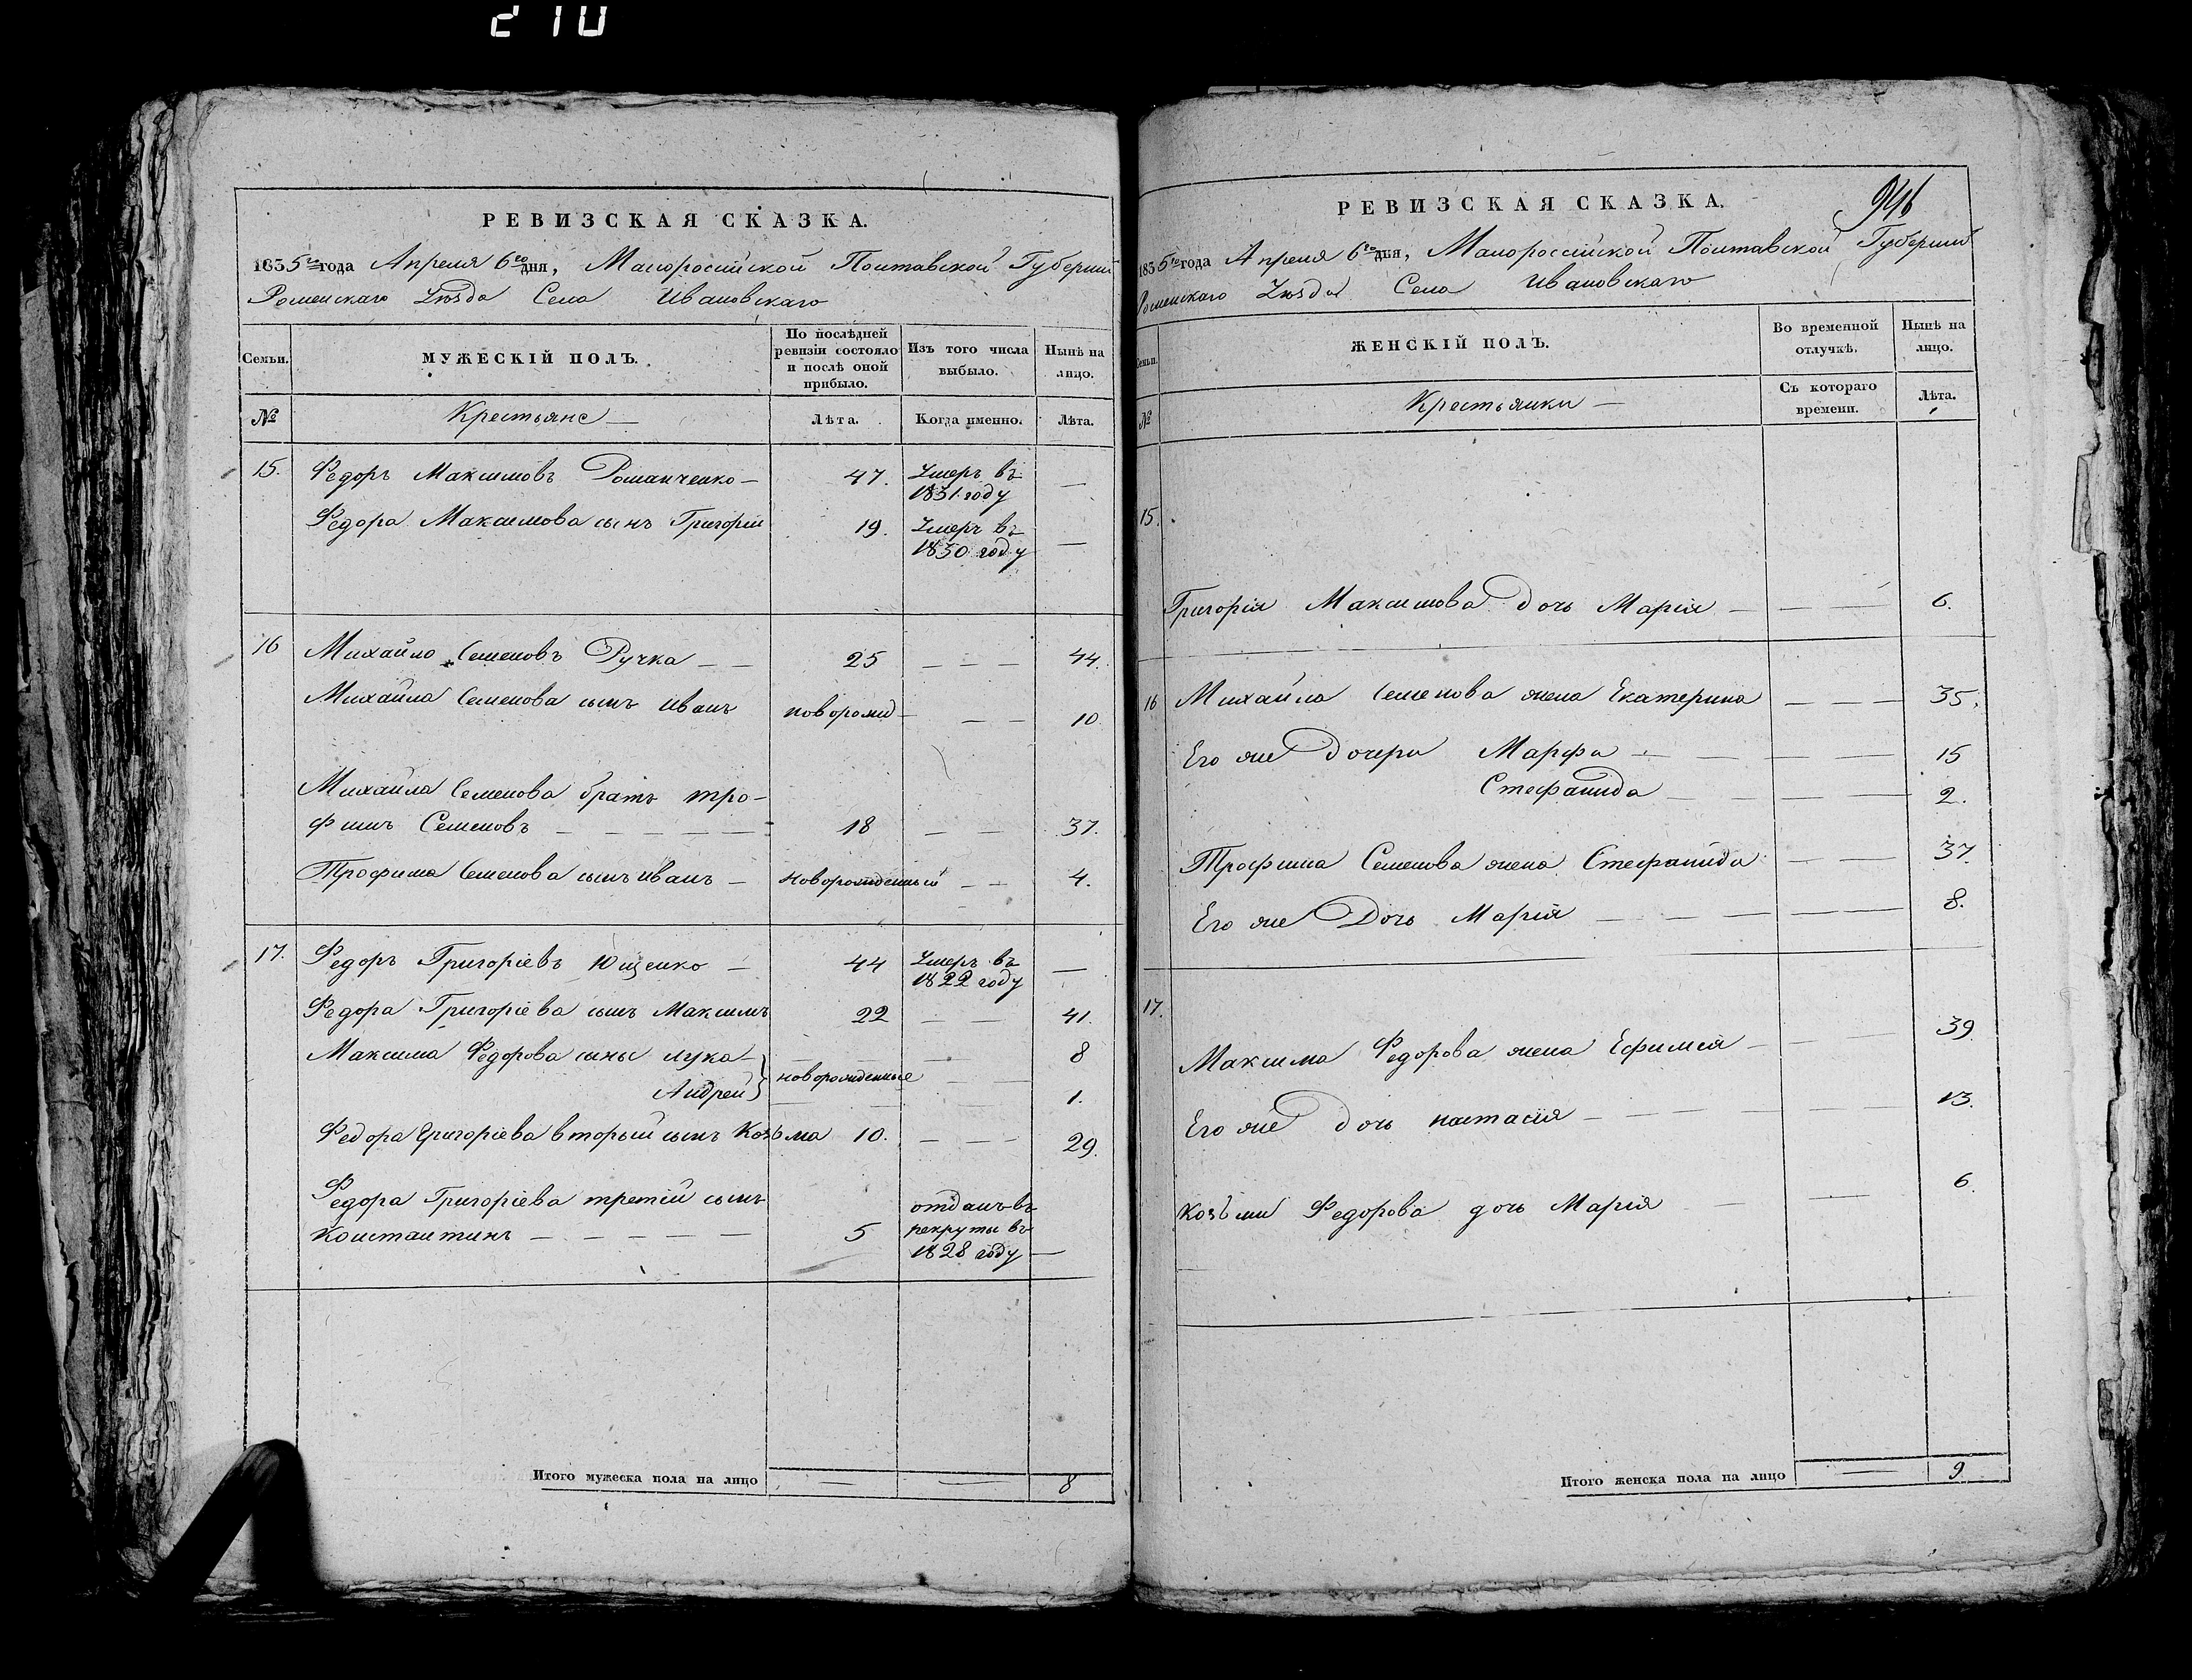 210
РЕВИЗСКАЯ СКАЗКА.
1835го года Апреля 6го дня, Малоросийской Полтавской Губернии
Роменскаго Уѣзда Села Ивановскаго
Семьи.
МУЖЕСКІЙ ПОЛЪ.
По послѣдней ревизіи состояло и послѣ оной прибыло.
Изъ того числа выбыло.
Нынѣ на лицо.
№
Крестьяне —
Лѣта.
Когда именно.
Лѣта.
15. Федоръ Максимовъ Романченко — 47. Умеръ въ —
1831 году
Федора Максимова сынъ Григорій 19. Умеръ въ —
1830 году
16 Михайло Семеновъ Ручка — — 25 — — — 44.
Михайла Семенова сынъ Иванъ новорожд — — — 10
Михайла Семенова братъ тро-
фимъ Семеновъ — — — — — 18 — — 37.
Трофима Семенова сынъ иванъ — Новорожденный — — 4.
17. Федоръ Григоріевъ Ющенко — 44 Умеръ въ —
1822 году
Федора Григоріева сынъ Максимъ 22 — — 41.
Максима Федорова сыны лука — — — — 8
Андрей } новорожденные — — 1.
Федора Григоріева вторый сынъ Козьма 10. — — — 29.
Федора Григоріева третій сынъ отданъ въ
Константинъ — — — — — 5 рекруты въ
1828 году —
Итого мужеска пола на лицо — — 8
РЕВИЗСКАЯ СКАЗКА.
1835го года Апреля 6го дня, Малороссійской Полтавской Губерніи
Роменскаго Уѣзда Села Ивановскаго
Семьи.
ЖЕНСКІЙ ПОЛЪ.
Во временной отлучкѣ.
Нынѣ на лицо.
№
Крестьянки —
Съ котораго времени.
Лѣта.
15.
Григорія Максимова дочь Марія — — — 6.
16 Михайла Семенова жена Екатерина — — — 35.
Его же дочери Марфа — — — — — 15
Стефанида — — — — 2.
Трофима Семенова жена Стефанида — — 37.
Его же Дочь Марія — — — — — 8.
17.
Максима Федорова жена Ефимія — — — 39
Его же дочь настасія — — — — — — 13.
Козьми Федорова дочь Марія — — 6
Итого женска пола на лицо — 9